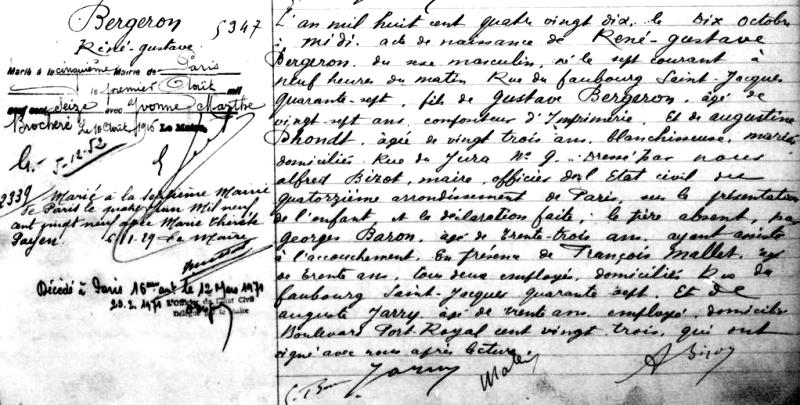 Bergeron
5347
René-Gustave
Marié à la cinquième Mairie de Paris
le premier Août mil
neuf cent seize avec Yvonne Marthe
Brocheré Le 10 Août 1916 Le Maire
G.- 5-12-52
2339 Marié à la septième Mairie
de Paris le quatre juin Mil neuf
cent vingt neuf avec Marie
Payen. Le Maire
Décédé à Paris 16ème ant le 12 Mars 1971
L'Officier de l'Etat Civil
L'an mil huit cent quatre vingt dix, le Dix octobre
à midi. acte de naissance de René-Gustave
Bergeron. du sexe masculin, né le sept courant à
neuf heures du matin Rue du faubourg Saint-Jacques
quarante-sept, fils de Gustave Bergeron, âgé de
vingt-sept ans, compositeur d'Imprimerie, Et de augustine
Phondt, âgée de vingt trois ans, blanchisseuse, mariés
domiciliés Rue du Jura No 9. .. Dressé par nous
alfred Bizot, maire, officier de l'Etat civil du
quatorzième arrondissement de Paris, sur la présentation
de l'enfant et la déclaration faite; le père absent, par
georges Baron, âgé de trente-trois ans, ayant assisté
à l'accouchement. En présence de François Mallet, âgé
de trente ans, tous deux employés, domiciliés Rue du
faubourg Saint-Jacques quarante sept, Et de
auguste Jarry, âgé de trente ans, employé, domicilié
Boulevard Port-Royal cent vingt trois, qui ont
signé avec nous après lecture
Jarry
A Bizot